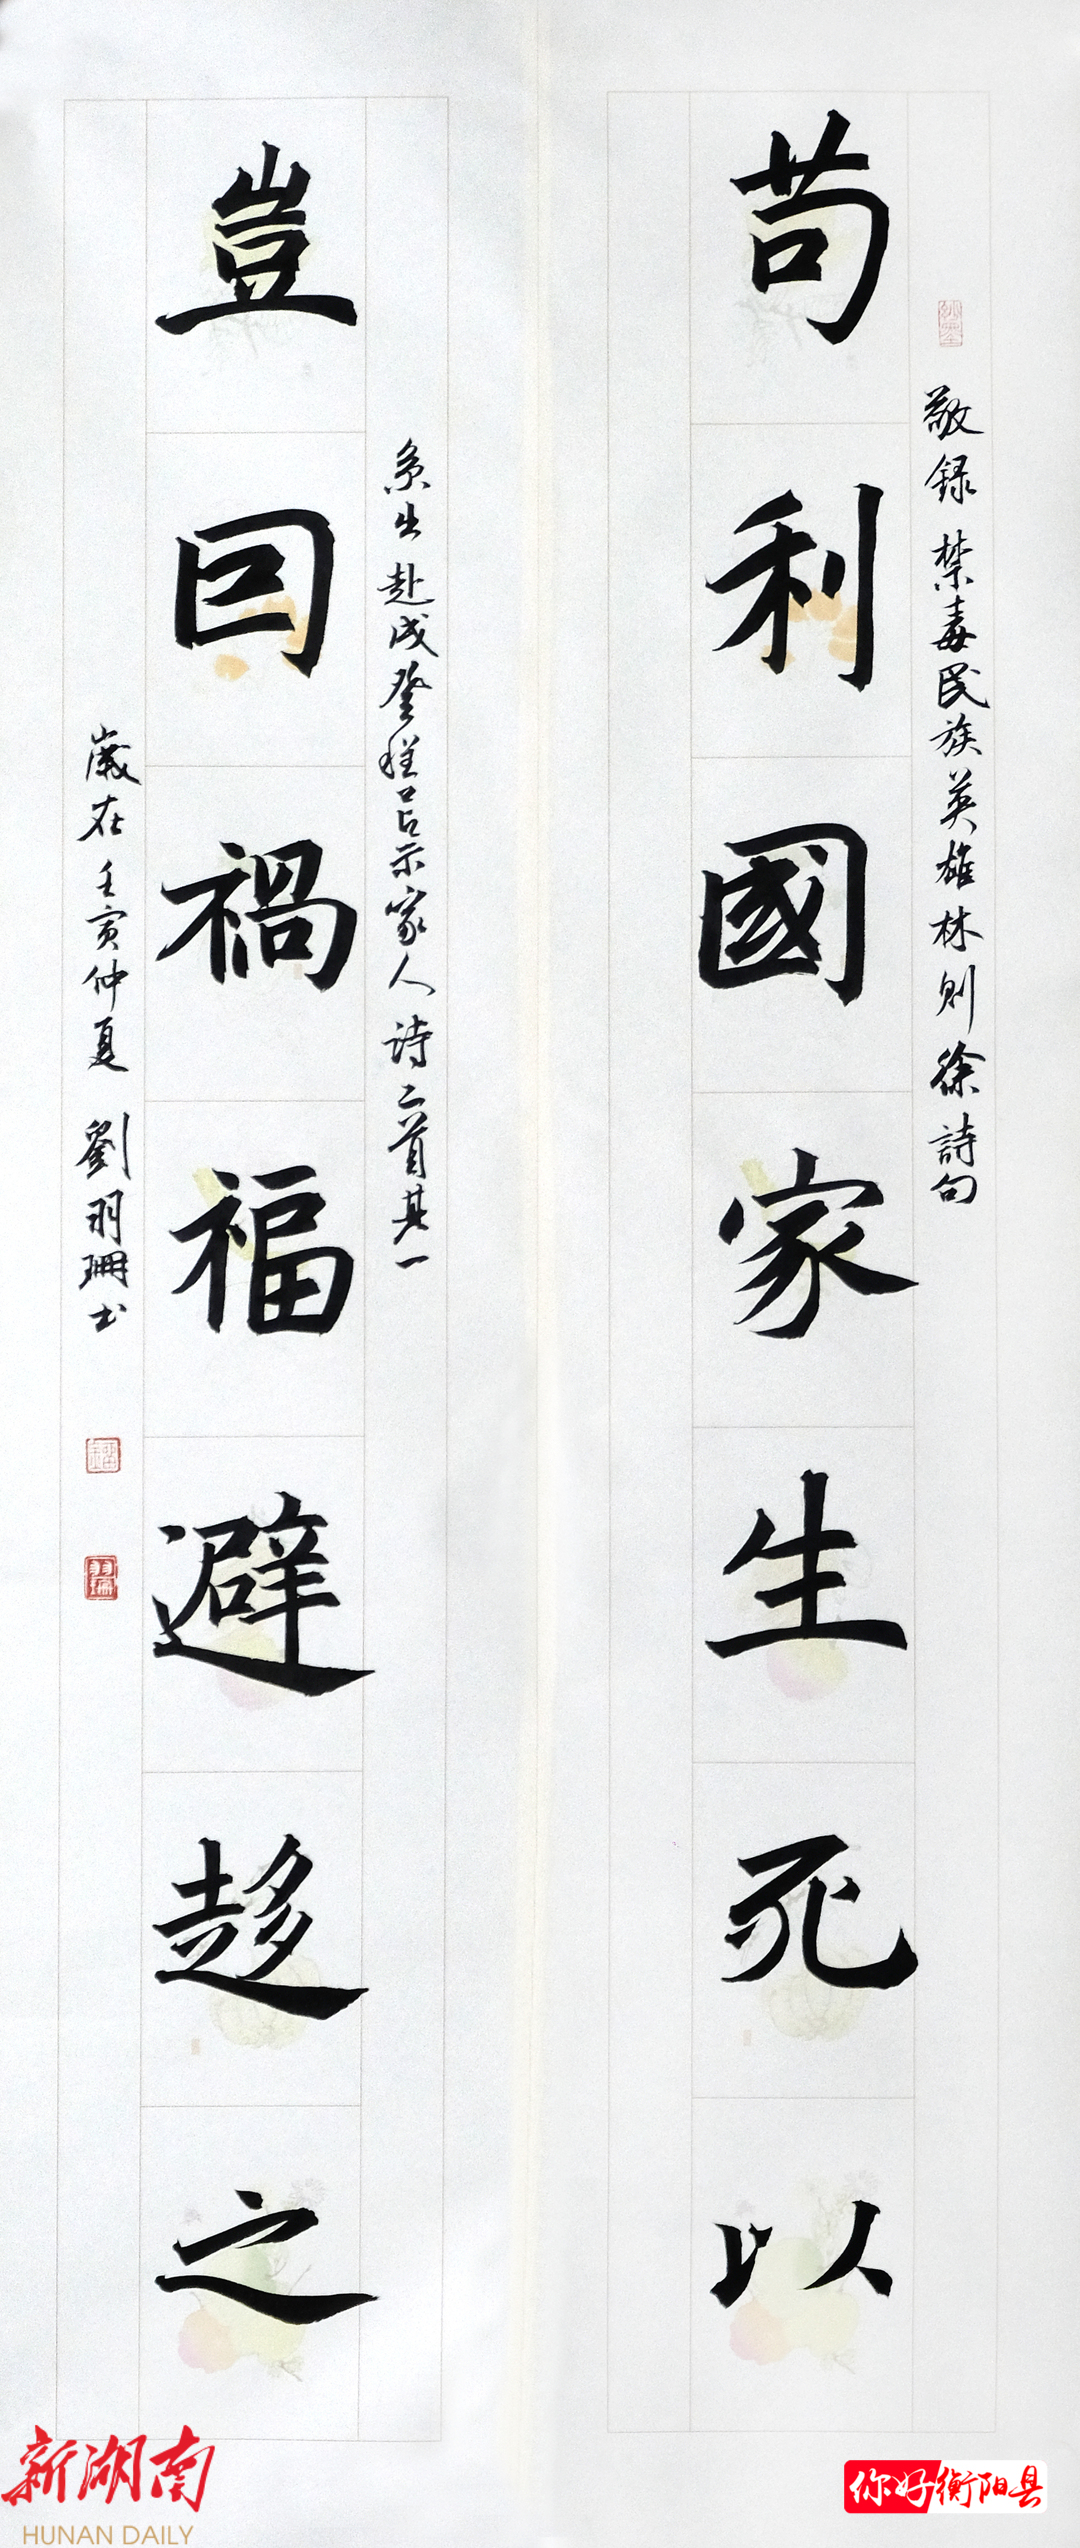 敬録禁毒民族英雄林則徐詩句
苟利國家生死以
系出赴戍登程口占示家人詩二首其一
豈囙禍福避趍之
歲在壬寅仲夏 劉羽珊书
新湖南
HUNAN DAILY
你好衡阳县